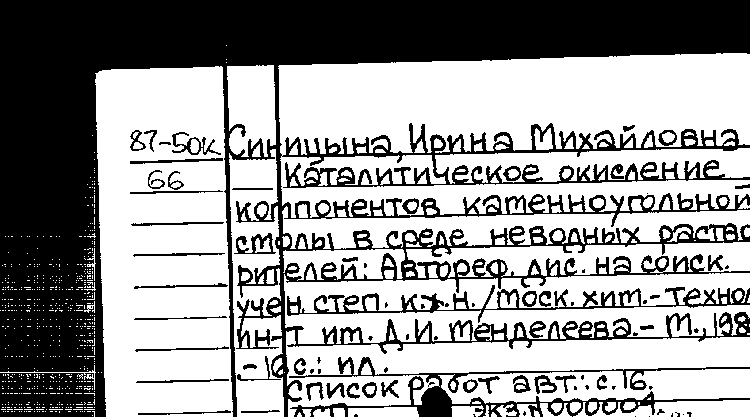 87-50к Синицына, Ирина Михайловна
66 Каталитическое окисление
компонентов каменноугольной
смолы в среде неводных раство
рителей: Автореф. дис. на соиск.
учен. степ. к.х.н. /Моск. хим.-технол
ин-т им. Д.И. Менделеева.- М., 198
.- 16 с.: ил.
Список работ авт.: с.16.
ДСП. Экз.N000004